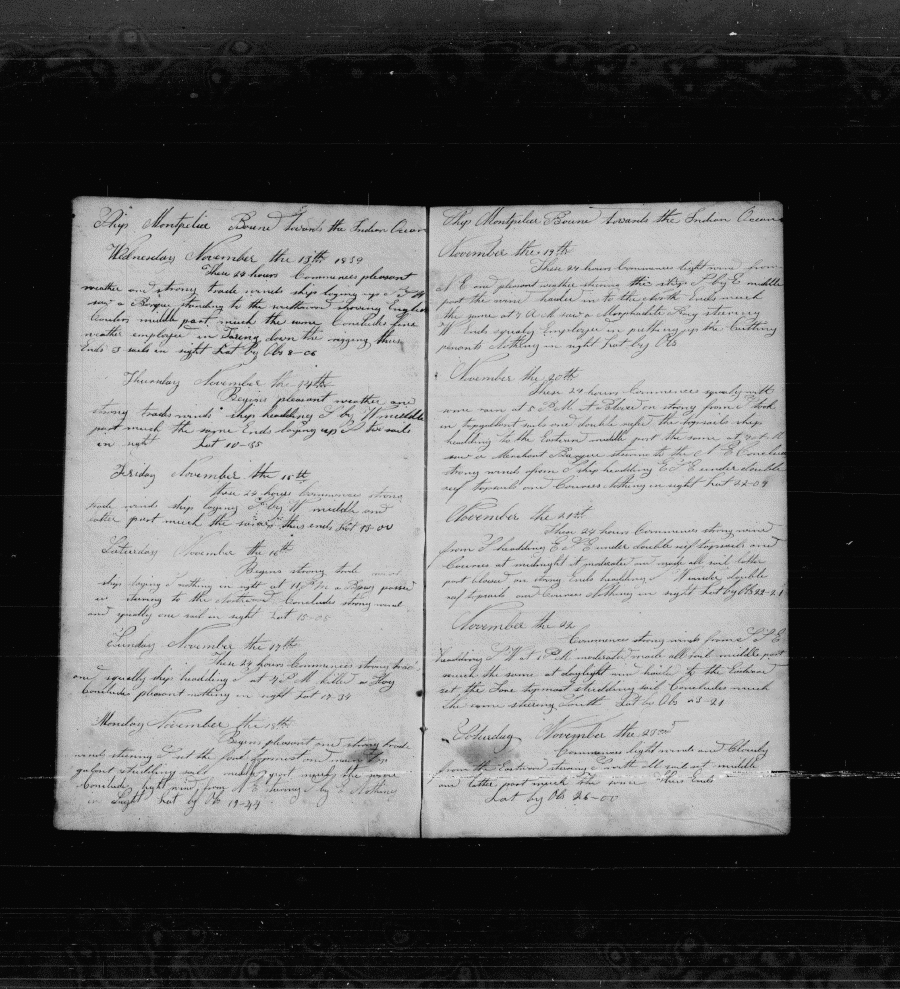 Ship Montpelier Bound towards the Indian Ocean
Wednesday November the 13th 1839
These 24 hours Commences pleasant
weather and strong trade winds ship laying up S S W
saw a Barque standing to the westward showing English
Coulors middle part much the same Concludes fine
weather employed in Taring down the rigging thus
Ends 3 sails in sight Lat by Obs 8-06
Thursday November the 14th
Begins pleasant weather and
strong trades winds ship heading S by W middle
part much the same Ends laying up S two sails
in sight Lat 10-55
Friday November the 15th
These 24 hours Commences strong
trade winds ship laying S by W middle and
latter part much the same thus ends Lat 13-00
Saturday November the 16th
Begins strong trade
ship laying S nothing in sight at a passed
us steering to the Northward Concludes strong wind
and squally one sail in sight Lat 15-05
Sunday November the 17th
These 24 hours Commences strong trade
and squally ship heading S at 4 P M killed a Hog
Concludes pleasant nothing in sight Lat 17-34
Monday November the 18th
Begins pleasant and strong trade
winds steering S set the fore topmast and main top
galant studding sails middle part much the same
Concludes light wind from N E steering S by E Nothing
in Sight Lat by Ob 19-44
Ship Montpelier Bound towards the Indian Ocean
November the 19th
These 24 hours Commences light wind from
N E and pleasant weather steering the ship S by E middle
part the wind hauled in to the North Ends much
the same at 7 A M saw a Morphadite Brig steering
W Ends squaly Employed in putting up the Cutting
penants Nothing in sight Lat by Obs
November the 20th
These 24 hours Commences squaly with
some rain at 5 P M A Blow on strong from S took
in topgalent sails and double reefd the topsails ship
heading to the Eastward middle part the same at A M
saw a Merchant Barque steering to the N E Concludes
strong winds from S ship heading E S E under double
reef topsails and Courses Nothing in sight Lat 22-09
November the 21st
These 24 hours Commences strong wind
from S heading E S E under double reef topsails and
Courses at midnight it moderated and made all sail latter
part blowed on strong Ends heading S W under double
reef topsails and Courses Nothing in sight Lat by Obs 22-21
November the 22
Commences strong winds from S S E
heading S W at P M moderated made all sail middle part
much the same at daylight wind hauled to the Eastward
set the Fore topmast studding sail Concludes much
the same steering South Lat by Obs 23-21
Saturday November the 23rd
Commences light winds and Cloudy
from the Eastward steering South all sail set middle
and latter part much the same Thus Ends
Lat by Obs 26-00